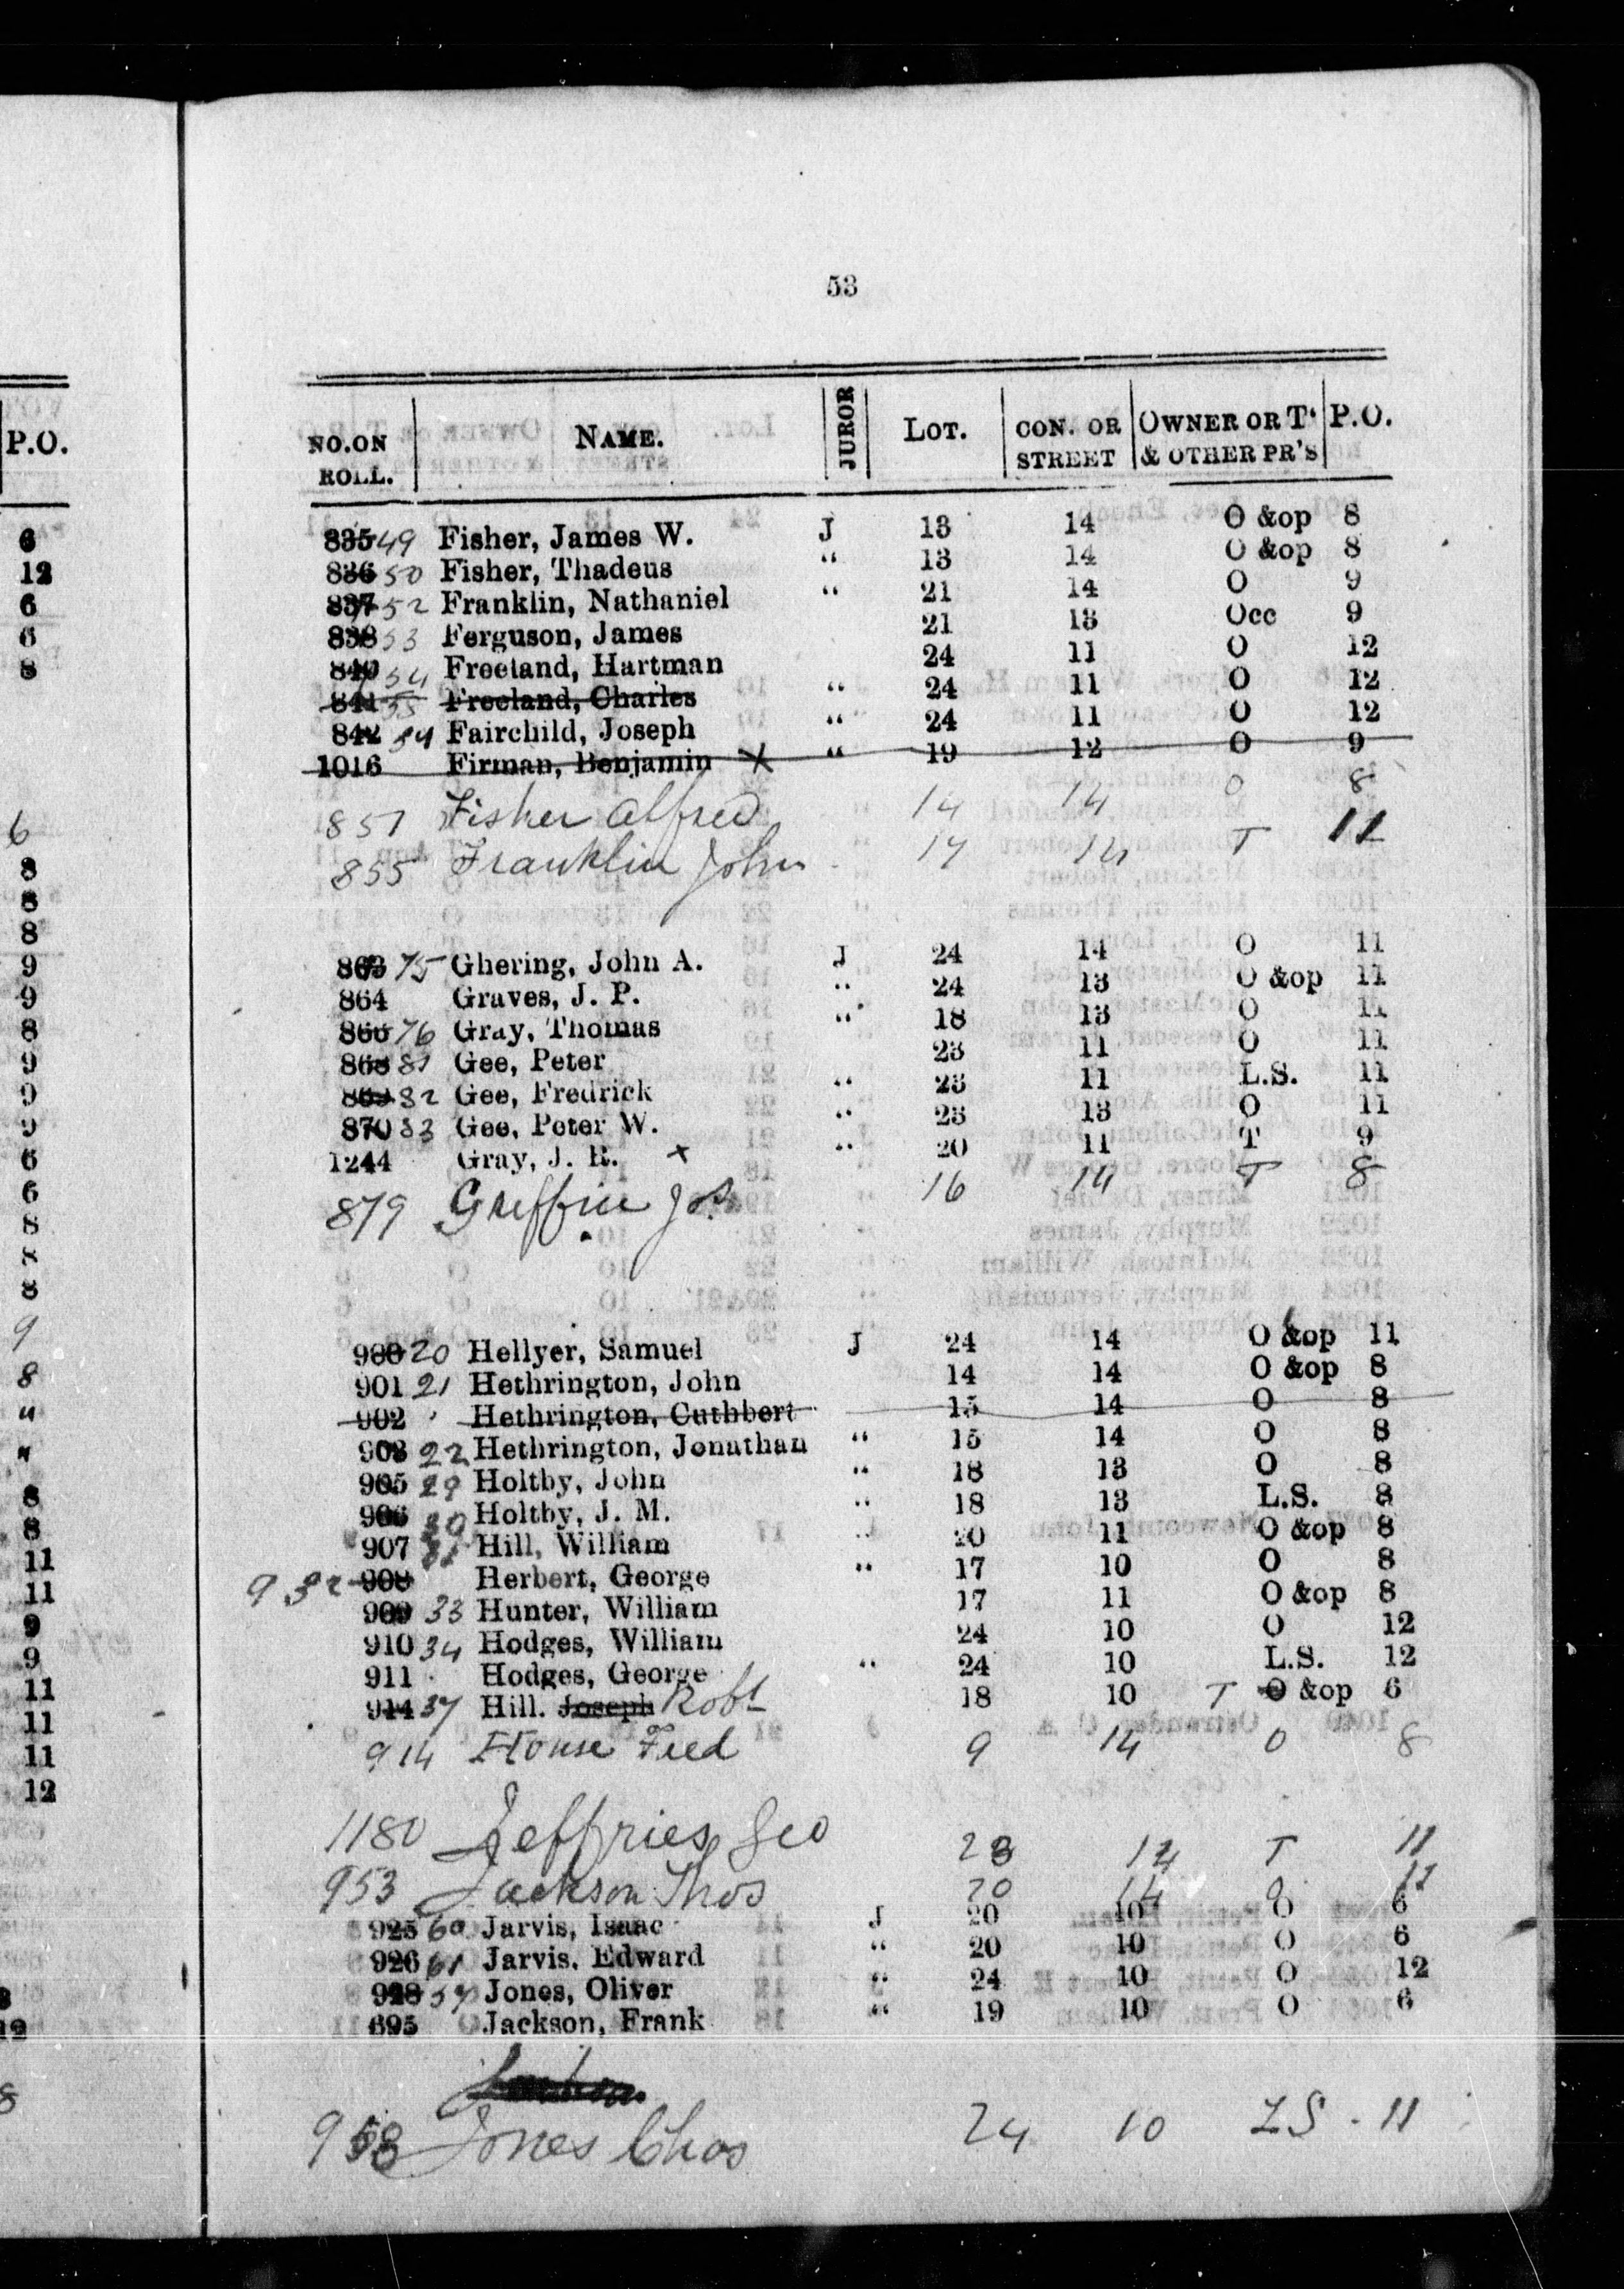 53
NO. ON ROLL. NAME. JUROR LOT. CON. OR STREET OWNER OR T' & OTHER PR'S P.O.
835 49 Fisher, James W. J 13 14 O &op 8
836 50 Fisher, Thadeus “ 13 14 O &op 8
837 52 Franklin, Nathaniel “ 21 14 O 9
838 53 Ferguson, James 21 13 Occ 9
840 54 Freeland, Hartman 24 11 O 12
841 55 Freeland, Charles “ 24 11 O 12
842 54 Fairchild, Joseph “ 24 11 O 12
1016 Firman, Benjamin X “ 19 12 O 9
851 Fisher Alfred 14 14 O 8
855 Franklin John 14 14 T 11
863 75 Ghering, John A. J 24 14 O 11
864 Graves, J. P. “ 24 13 O &op 11
866 76 Gray, Thomas “ 18 13 O 11
868 81 Gee, Peter 23 11 O 11
869 82 Gee, Fredrick “ 23 11 L.S. 11
870 83 Gee, Peter W. “ 23 13 O 11
1244 Gray, J. R. x “ 20 11 T 9
879 Griffin Jos. 16 14 T 8
900 20 Hellyer, Samuel J 24 14 O &op 11
901 21 Hethrington, John 14 14 O &op 8
902 Hethrington, Cuthbert 15 14 O 8
903 22 Hethrington, Jonathan “ 15 14 O 8
905 29 Holtby, John “ 18 13 O 8
906 30 Holtby, J. M. “ 18 13 L.S. 8
907 31 Hill, William “ 20 11 O &op 8
932 908 Herbert, George “ 17 10 O 8
909 33 Hunter, William 17 11 O &op 8
910 34 Hodges, William 24 10 O 12
911 Hodges, George “ 24 10 L.S. 12
914 37 Hill. Joseph Robt 18 10 T O &op 6
914 House Fred 9 14 O 8
1180 Jeffries Geo 23 14 T 11
953 Jackson Thos 20 14 O 11
925 60 Jarvis, Isaac J 20 10 O 6
926 61 Jarvis, Edward “ 20 10 O 6
928 57 Jones, Oliver “ 24 10 O 12
695 Jackson, Frank “ 19 10 O 6
958 Jones Chas 24 10 LS. 11
P.O.
6
12
6
6
8
6
8
8
8
9
9
8
9
9
9
6
6
8
8
8
9
8
"
"
8
8
11
11
9
9
11
11
11
12
12
8